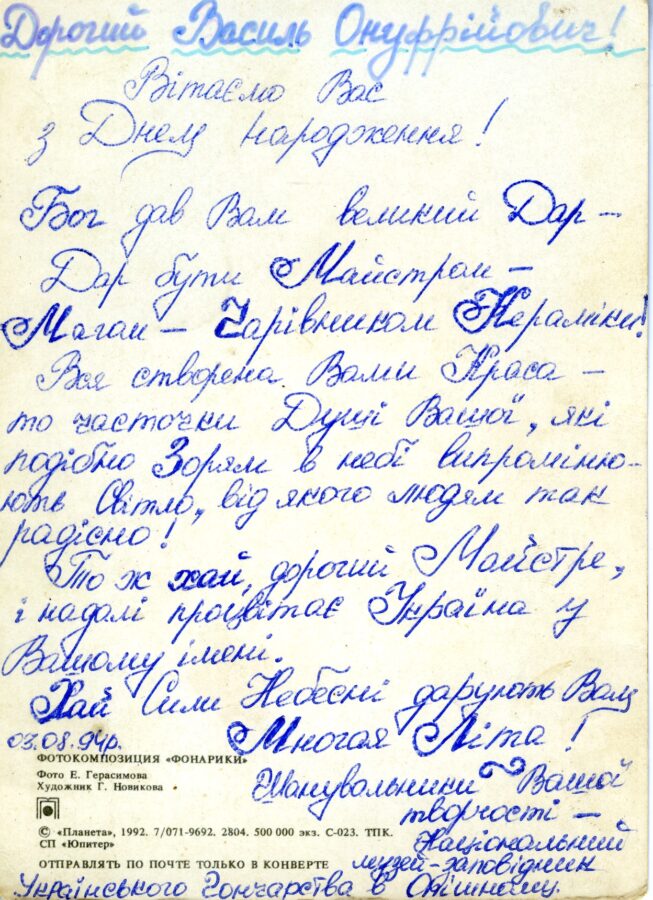 Дорогий Василь Онуфрійович!
Вітаємо Вас
з Днем народження!
Бог дав Вам великий Дар –
Дар бути Майстром –
Магом – Чарівником Кераміки!
Вся створена Вами Краса –
то часточки Душі Вашої, які
подібно Зорям в небі випроміню-
ють Світло, від якого людям так
радісно!
То ж хай, дорогий Майстре,
і надалі процвітає Україна у
Вашому імені.
Хай Сили Небесні дарують Вам
03.08.94р.
Многая Літа!
ФОТОКОМПОЗИЦИЯ «ФОНАРИКИ»
Фото Е. Герасимова
Художник Г. Новикова
Шанувальники Вашої
творчості –
© «Планета», 1992. 7/071-9692. 2804. 500 000 экз. С-023. ТПК.
СП «Юпитер»
Національний
ОТПРАВЛЯТЬ ПО ПОЧТЕ ТОЛЬКО В КОНВЕРТЕ
музей-заповідник
Українського Гончарства в Опішному.